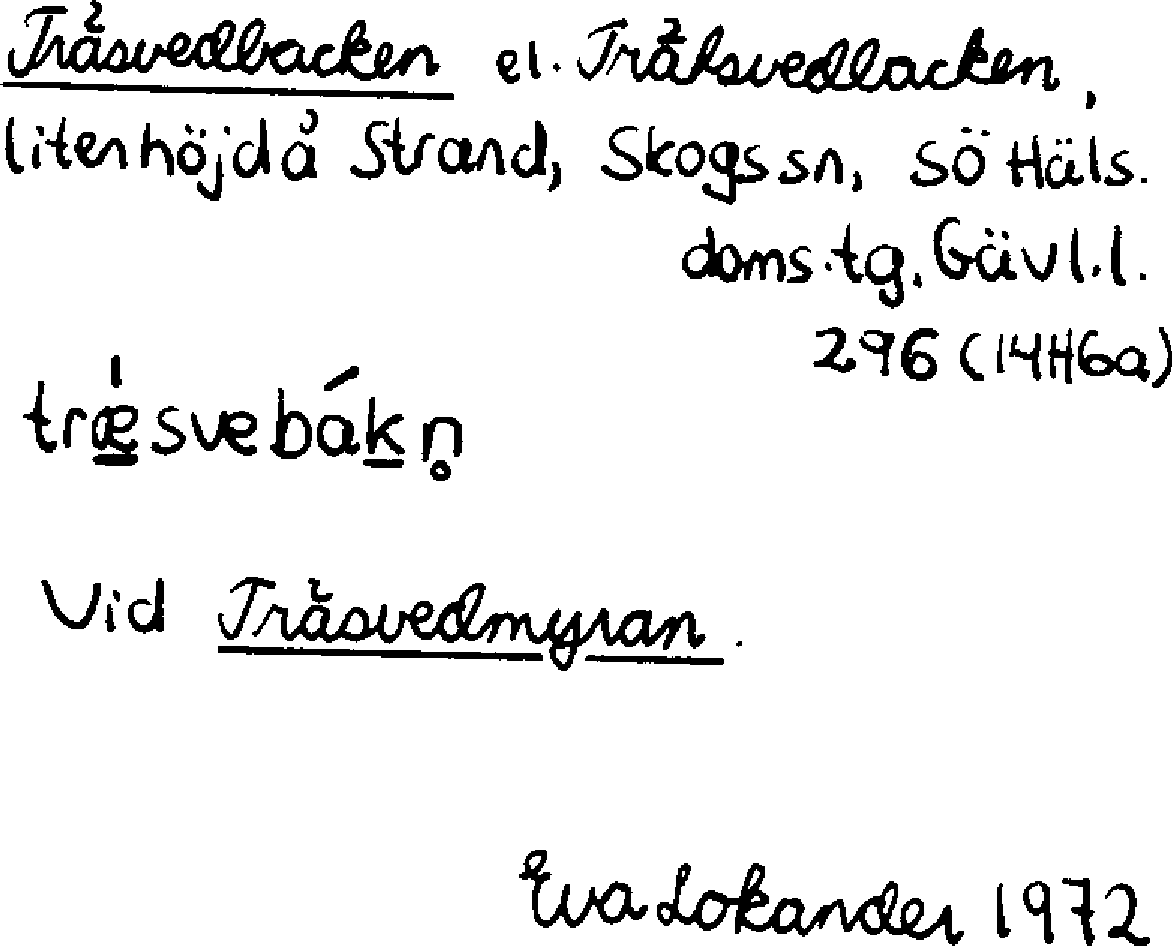 Träsvedbacken el. Träksvedbacken,
liten höjd å Strand, Skogs sn, Sö Häls.
doms.tg. Gävl.l.
296 (14H6a)
trǽ̲svebák̲n̥
Vid Träsvedmyran.
Eva Lokander 1972